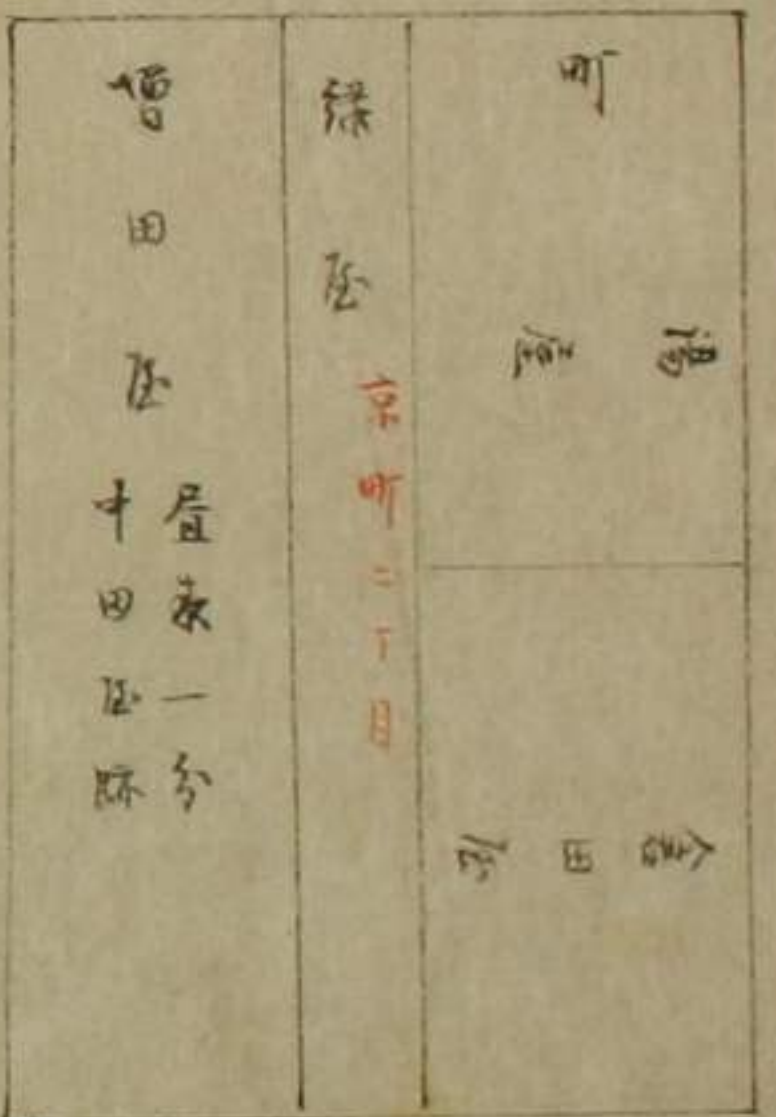 町
田屋
屋
京町二丁目
増田屋
昼夜一分
中田屋跡